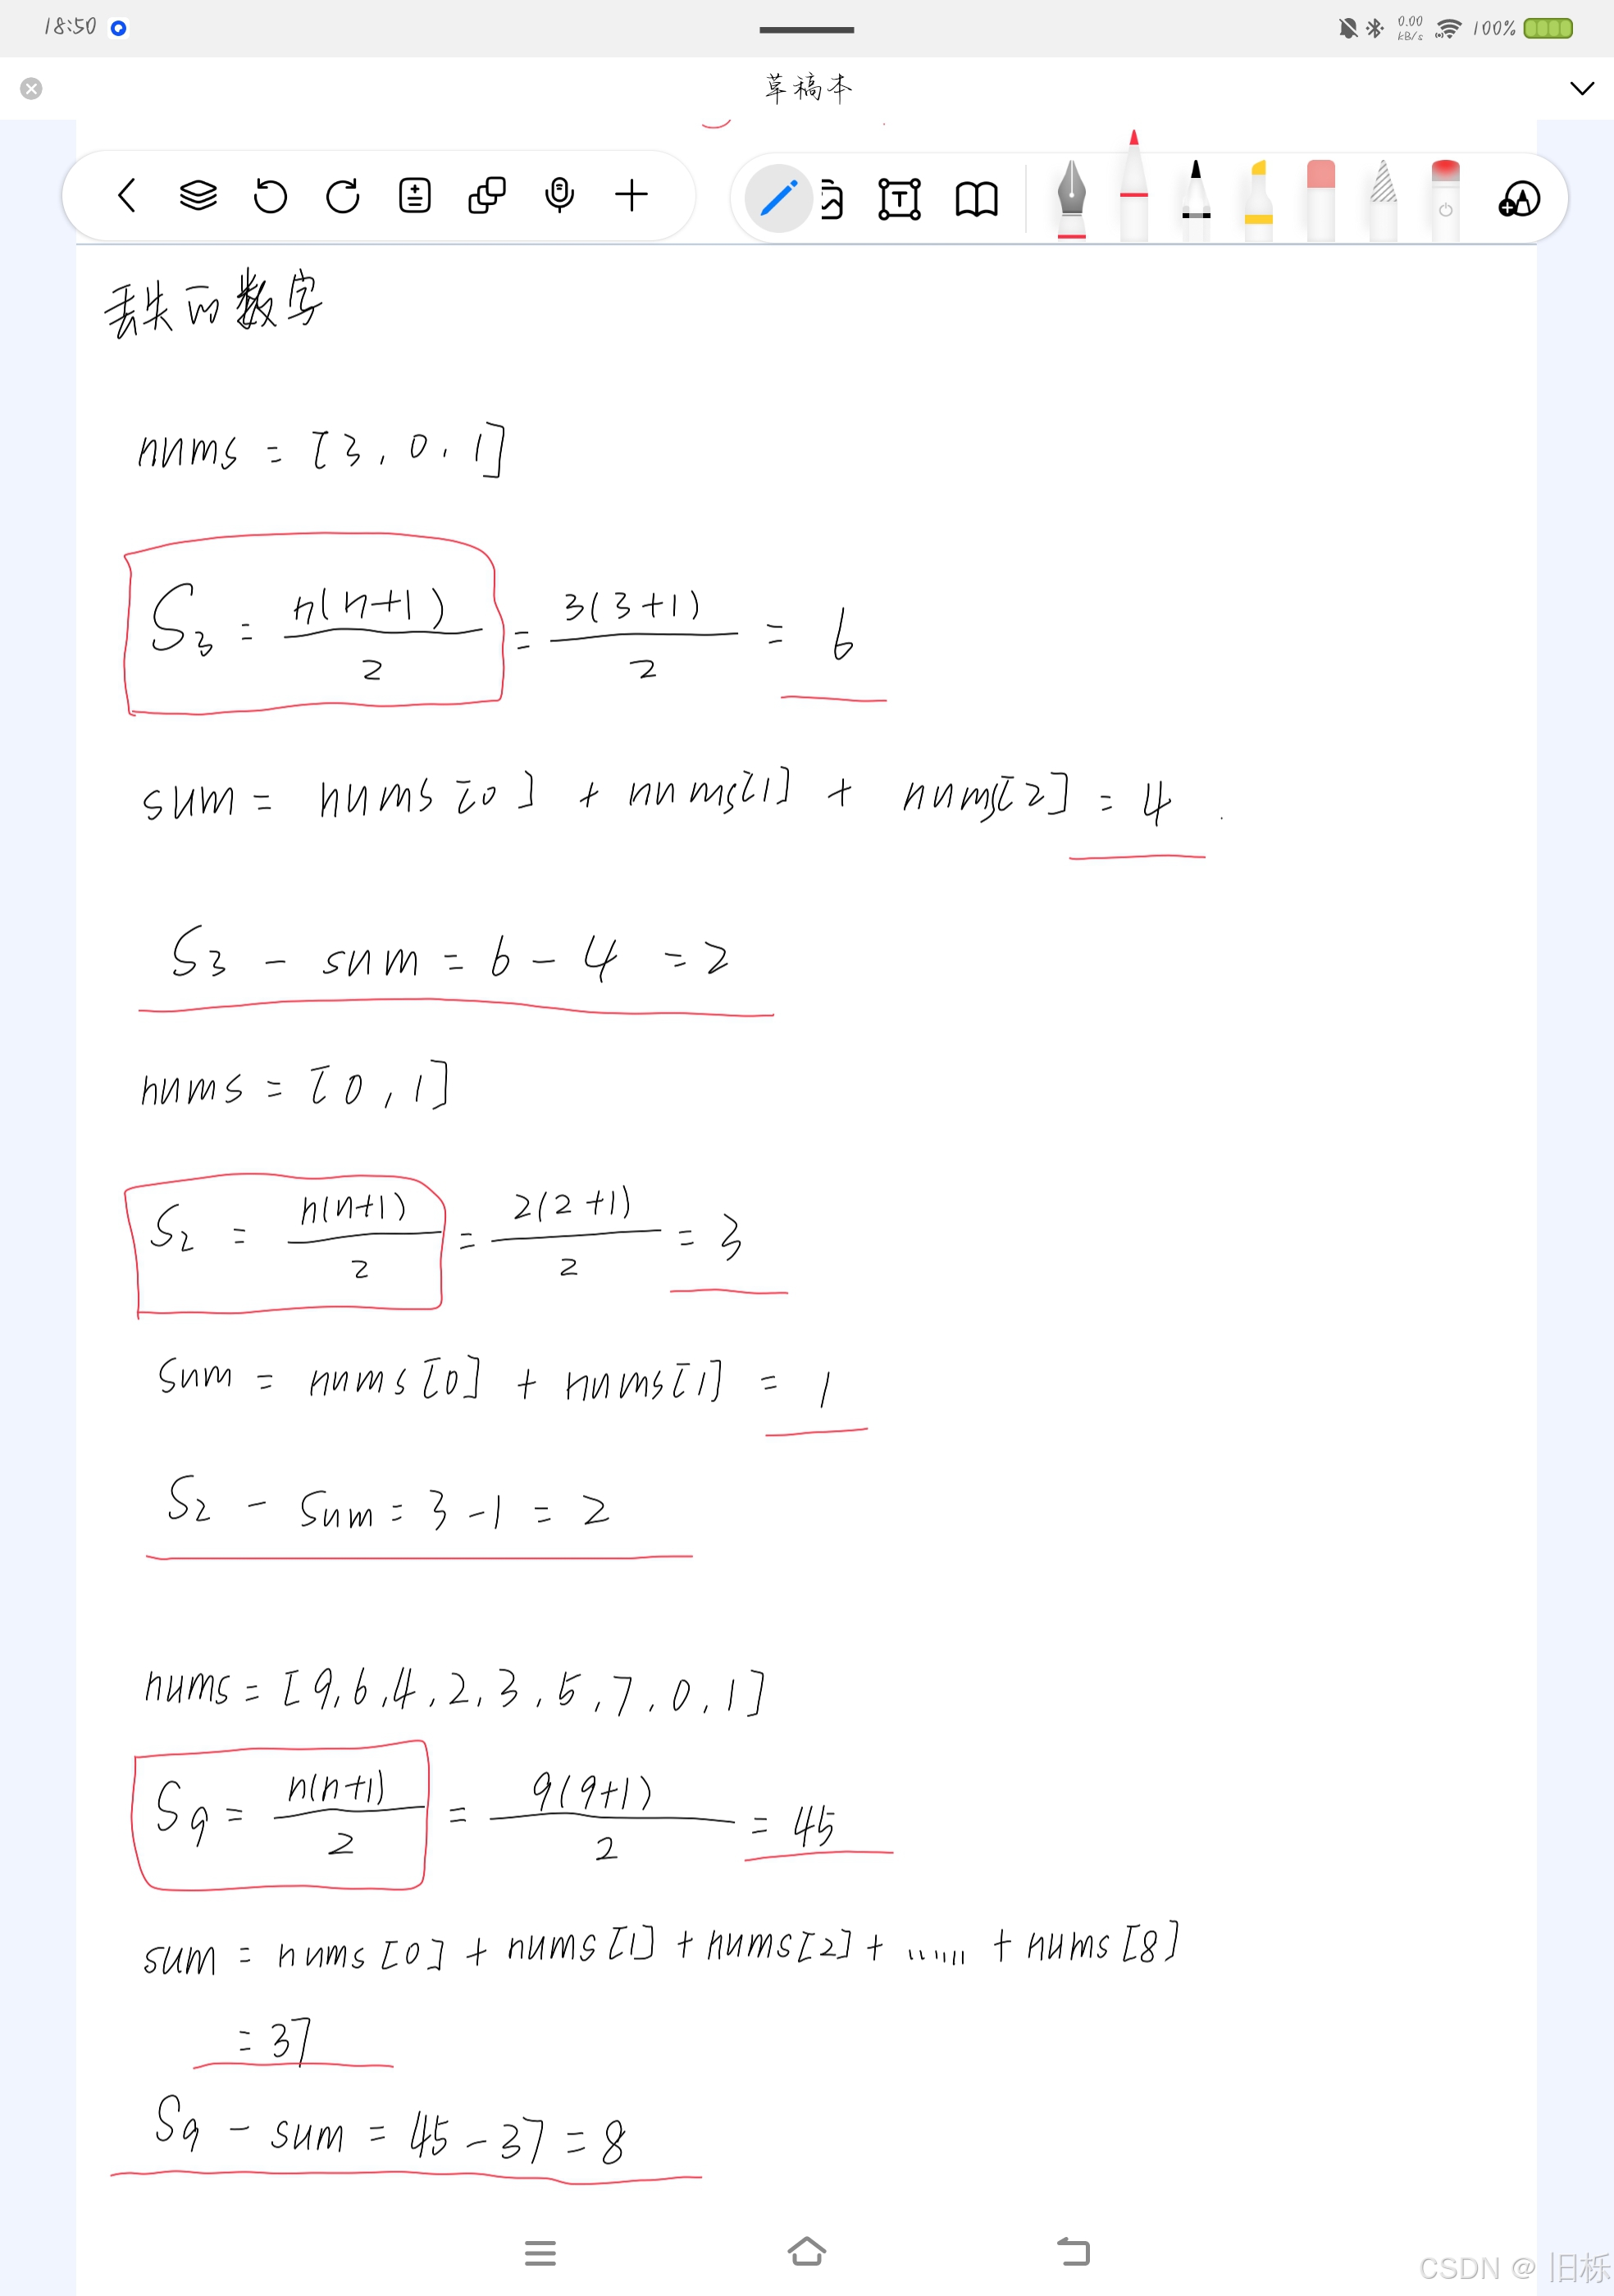 18:50 0.00 kB/s 100%
草稿本
丢失的数字
nums = [3, 0, 1]
S₃ = n(n+1)/2 = 3(3+1)/2 = 6
sum = nums[0] + nums[1] + nums[2] = 4
S₃ - sum = 6 - 4 = 2
nums = [0, 1]
S₂ = n(n+1)/2 = 2(2+1)/2 = 3
sum = nums[0] + nums[1] = 1
S₂ - sum = 3 - 1 = 2
nums = [9, 6, 4, 2, 3, 5, 7, 0, 1]
S₉ = n(n+1)/2 = 9(9+1)/2 = 45
sum = nums[0] + nums[1] + nums[2] + ...... + nums[8]
= 37
S₉ - sum = 45 - 37 = 8
CSDN @旧栎